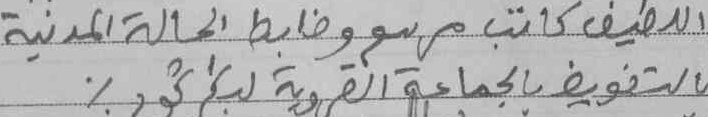 اللطيف كاتب مرسم وضابط الحالة المدنية
بالتفويض بالجماعة القروية